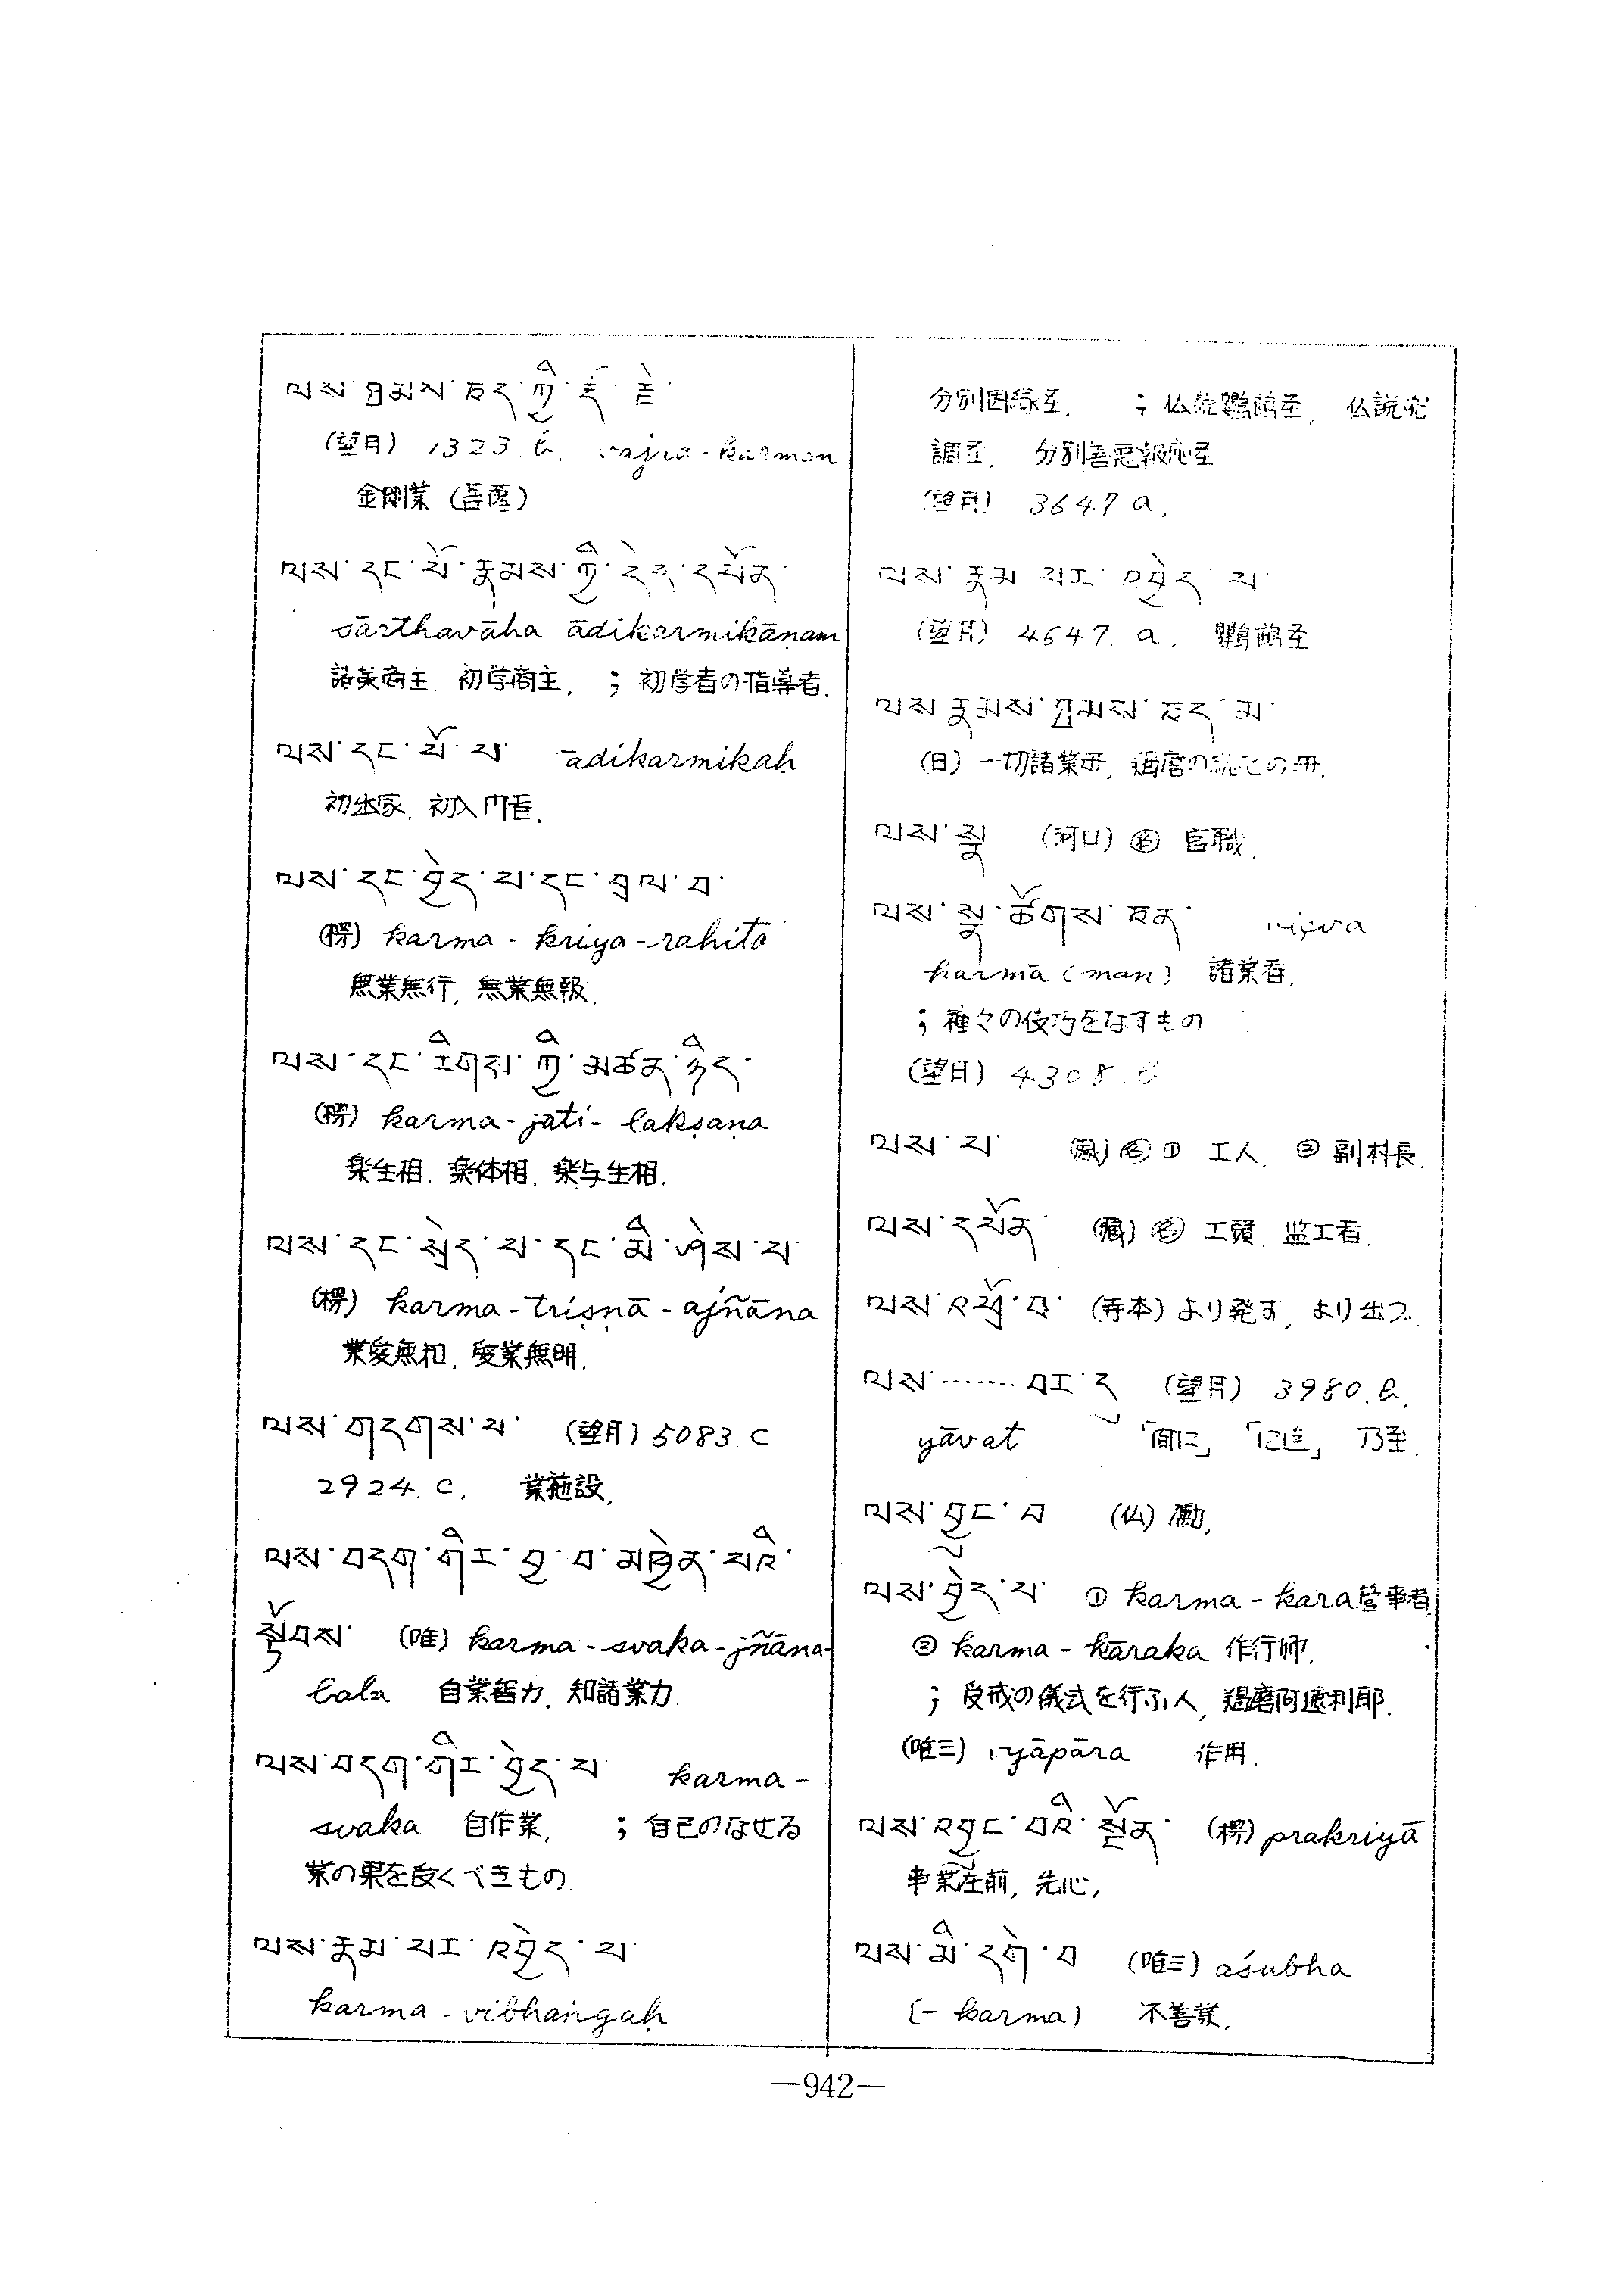 ལས་ཐམས་ཅད་ཀྱི་རྡོ་རྗེ་
(望月) 1323. b. vajra-karman
金剛業 (菩薩)
ལས་དང་པོ་རྣམས་ཀྱི་དེད་དཔོན་
sārthavāha ādikarmikāṇam
諸美商主. 初学商主, ; 初学者の指導者.
ལས་དང་པོ་པ་ ādikarmikaḥ
初出家. 初入門者.
ལས་དང་བྱེད་པ་དང་བྲལ་བ་
(楞) karma-kriya-rahita
無業無行, 無業無報.
ལས་དང་རིགས་ཀྱི་མཚན་ཉིད་
(楞) karma-jati-lakṣaṇa
業生相. 業体相. 業与生相.
ལས་དང་སྲེད་པ་དང་མི་ཤེས་པ་
(楞) karma-triṣṇā-ajñāna
業愛無知. 愛業無明.
ལས་གདགས་པ་ (望月) 5083 c
2924. c. 業施設.
ལས་བདག་གིར་བྱ་བ་མཁྱེན་པའི་
སྟོབས་ (唯) karma-svaka-jñāna-
bala 自業智力. 知諸業力.
ལས་བདག་གིར་བྱེད་པ་ karma-
svaka 自作業, ; 自己のなせる
業の果を受くべきもの.
ལས་རྣམ་པར་འབྱེད་པ་
karma-vibhaṅgaḥ
分別因縁圣, ; 仏説鸚鵡圣, 仏説兜
調圣. 分別善悪報応圣
(望月) 3647 a.
ལས་རྣམ་པར་འབྱེད་པ་
(望月) 4647. a. 鸚鵡圣.
ལས་རྣམས་ཐམས་ཅད་མ་
(日) 一切諸業母,
ལས་སྣ་ (河口) 名 官職.
ལས་སྣ་ཚོགས་ཅན་ viçva
karmā (man) 諸業者.
; 種々の伎巧をなすもの
(望月) 4308. b
ལས་པ་ (蔵) 名 ① 工人. ② 副村長.
ལས་དཔོན་ (蔵) 名 工頭. 监工者.
ལས་འཕྲོ་བ་ (寺本) より発す, より出づ.
ལས་……བར་དུ (望月) 3980. b.
yāvat 「間に」「に迄」 乃至.
ལས་བྱུང་བ (仏) 働,
ལས་བྱེད་པ་ ① karma-kara 営事者,
② karma-kāraka 作行師.
; 受戒の儀式を行ふ人, 羯磨阿遮利耶.
(唯三) vyāpāra 作用.
ལས་འབྱུང་བའི་སྔོན་ (楞) prakriyā
事業在前, 先心,
ལས་མི་དགེ་བ (唯三) aśubha
(-karma) 不善業.
—942—